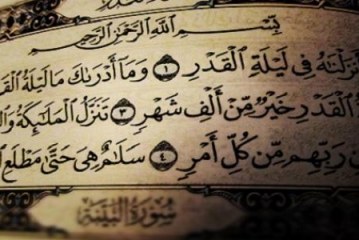 بِسْمِ ٱللَّهِ ٱلرَّحْمَٰنِ ٱلرَّحِيمِ
فِى لَيْلَةِ ٱلْقَدْرِ ١ وَمَآ أَدْرَىٰكَ مَا لَيْلَةُ
ٱلْقَدْرِ خَيْرٌ مِّنْ أَلْفِ شَهْرٍ ٣ تَنَزَّلُ ٱلْمَلَٰٓئِكَةُ
رَبِّهِم مِّن كُلِّ أَمْرٍ ٤ سَلَٰمٌ هِىَ حَتَّىٰ مَطْلَعِ
سُورَةُ ٱلْبَيِّنَةِ